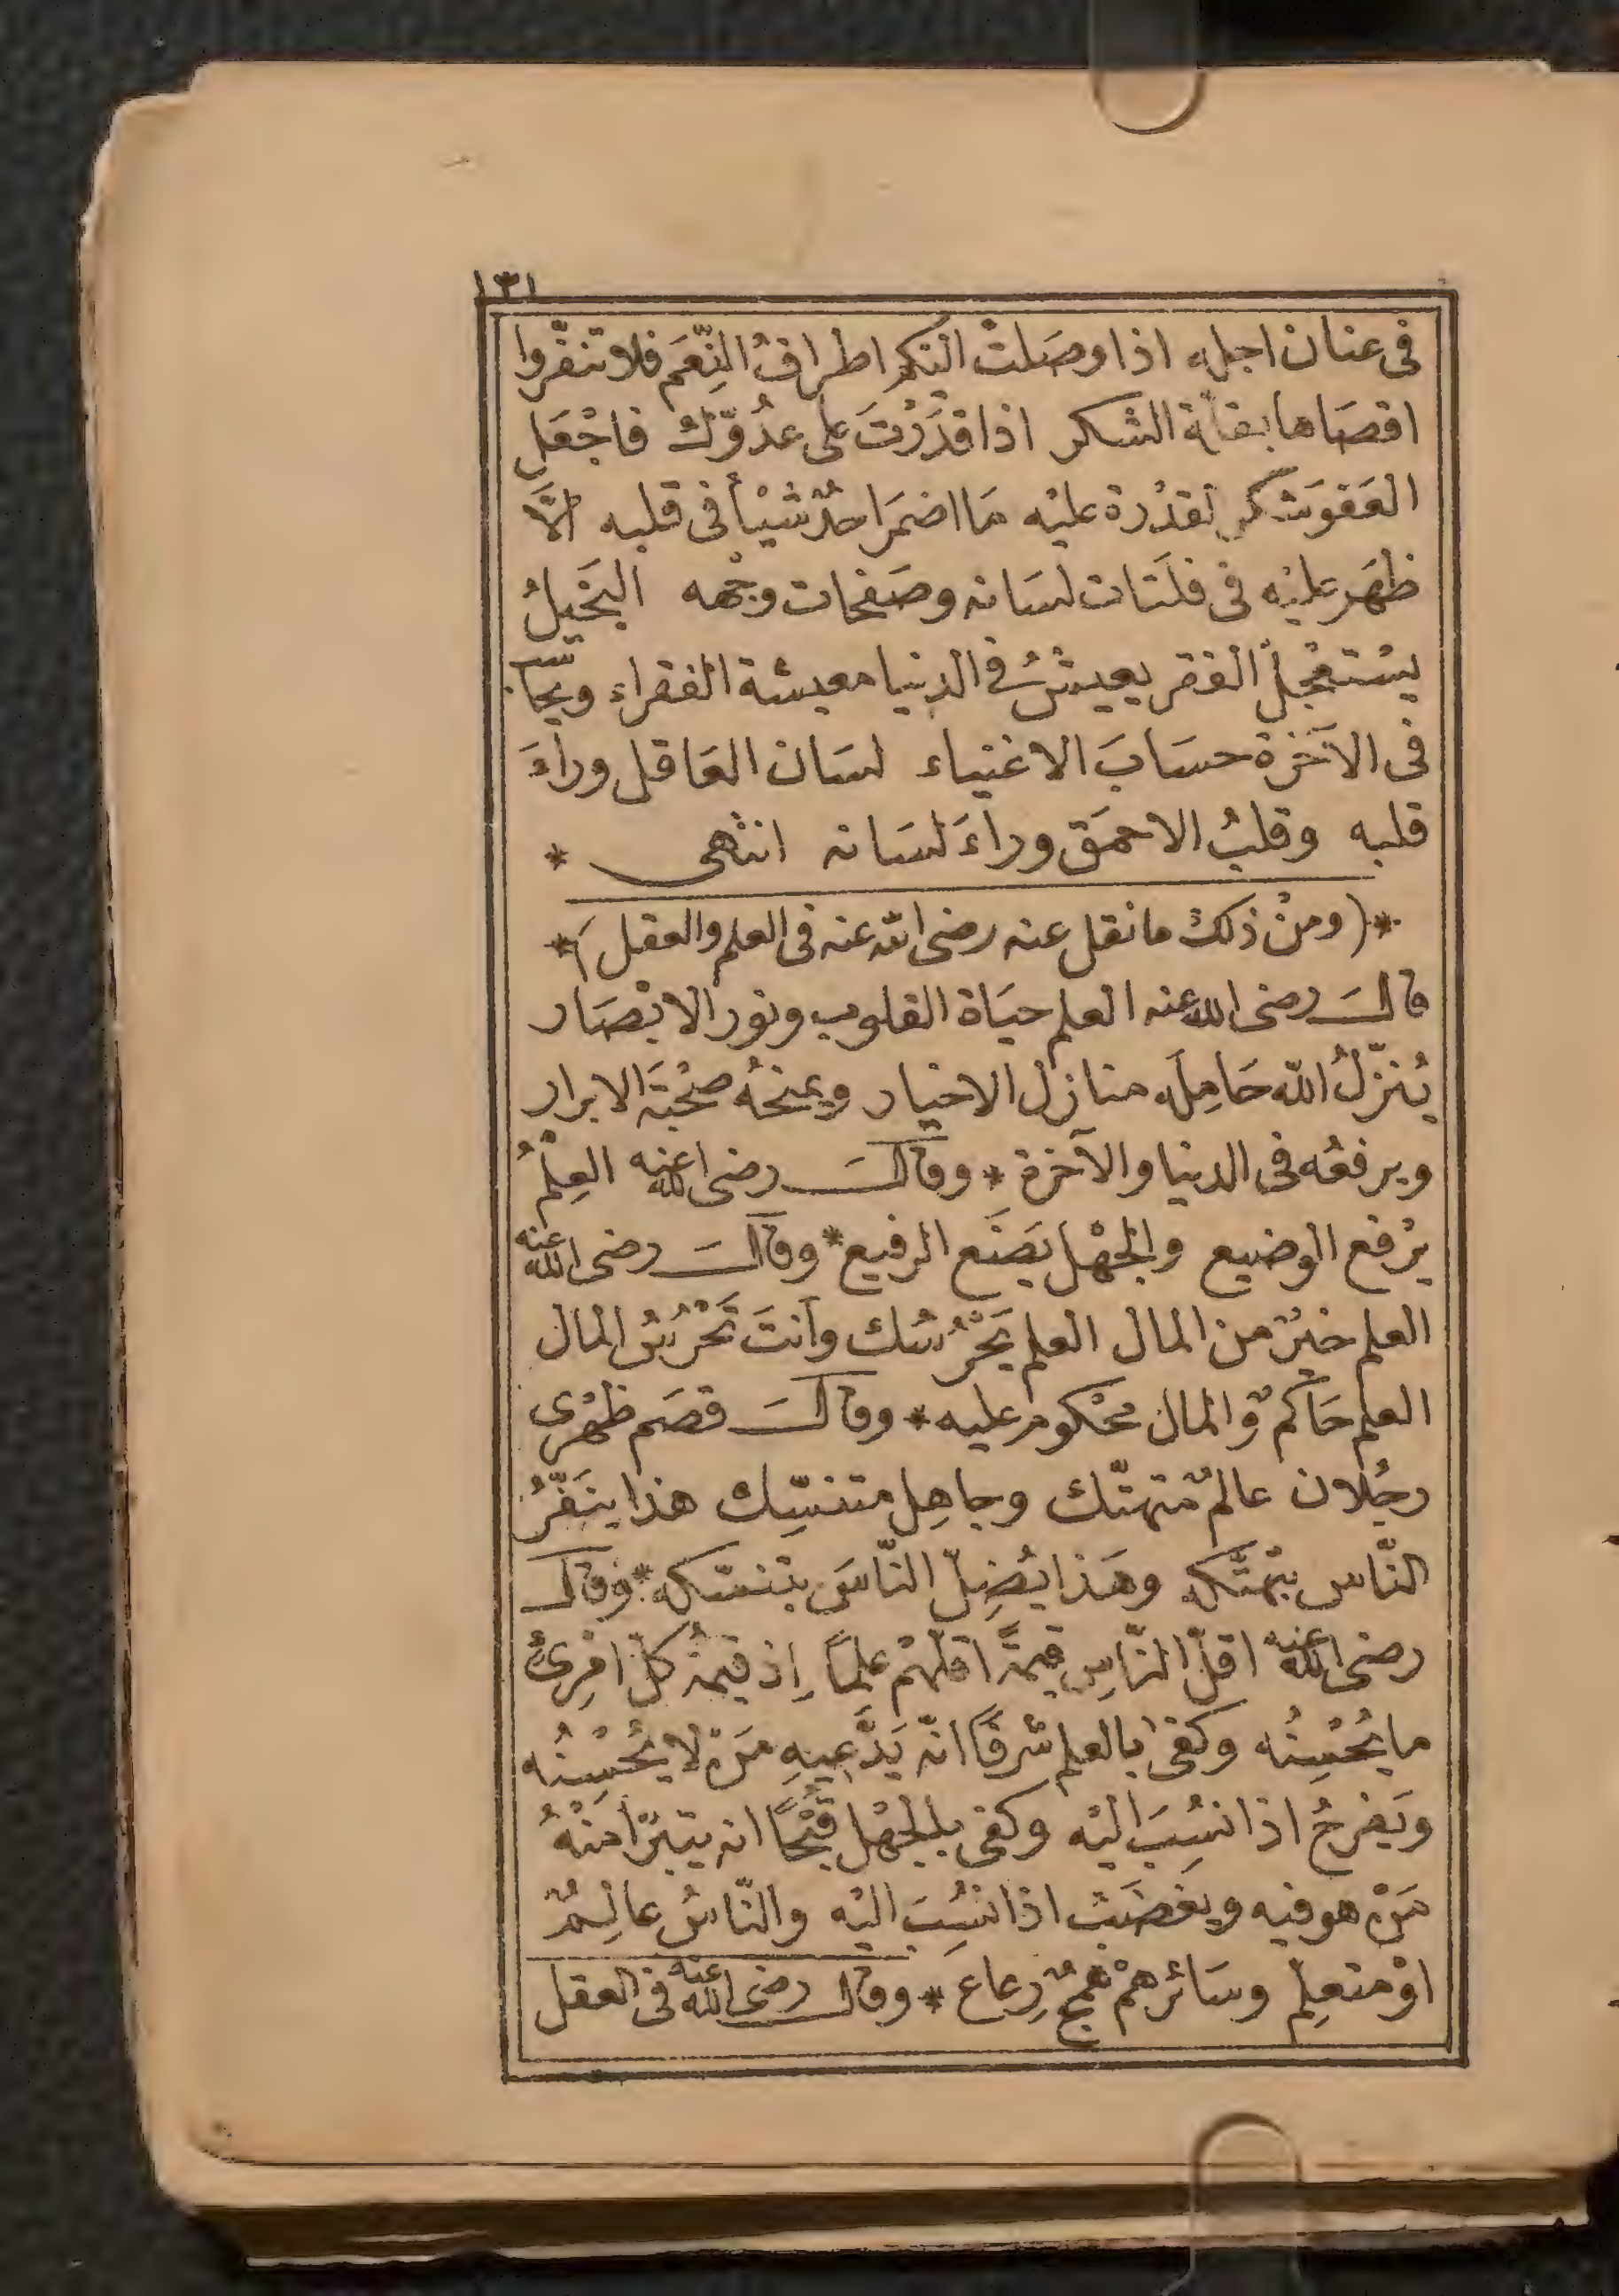 ١٣١
فى عنان اجله اذا وصَلتْ اليكم اطرافُ النِّعَم فلا تنفّروا
اقصَاها بقلّة الشكر اذا قَدَرْتَ على عدُوّكَ فاجْعَل
العَفوَ شكر لقدْرة عليْه مَا اضمَر احدٌ شيْأً فى قلبه الَّا
ظهَر عليْه فى فلَتَات لسَانه وصَفحَات وجْهه البَخيلُ
يسْتعْجلُ الفقر يعيشُ فى الدنيا معيشة الفقراء ويحَاسب
فى الآخرَة حسَابَ الاغنياء لسَان العَاقل ورآءَ
قلبه وقلبُ الاحمَق ورآءَ لسَانه انتهى *
*(ومنْ ذلكَ ما نقل عنه رضى الله عنه فى العلم والعقل)*
قالَ رضى الله عنه العلم حيَاة القلوب ونور الابْصَار
يُنزّلُ الله حَامِلَه منازل الاخيار ويمنحُه صحْبَة الابرار
ويرفعُه فى الدنيا والآخرة * وقالَ رضى الله عنه العِلْمُ
يرْفع الوضيع والجهْل يَضَع الرفيع * وقالَ رضى الله عنه
العلم خيْرٌ من المال العلم يَحْرُسُك وأنتَ تَحْرُسُ المال
العلم حَاكمٌ والمال محْكوم عليه * وقالَ قصَم ظهْرى
رجُلان عالمٌ متهتّك وجاهِل متنسّك هذا ينَفّرُ
النّاس بتهتّكه وهَذا يُضِلّ النّاسَ بتنسّكه * وقال
رضى الله عنه اقلّ النّاسِ قيمَةً اقلّهُمْ علمًا إذ قيمَةُ كلّ امْرِئٍ
ما يُحْسِنُه وكفى بالعلم شرَفًا انّه يَدَّعِيهِ مَنْ لا يُحْسِنُه
ويَفرحُ اذا نسُبَ اليْه وكفى بالجهْل قُبْحًا انه يتبرّأ منْهُ
مَنْ هو فيه ويغضَبُ اذا نسُبَ اليْه والنّاسُ عالِمٌ
اوْ متعلِم وسَائرهمْ همجٌ رعاع * وقال رضى الله عنه فى العقل